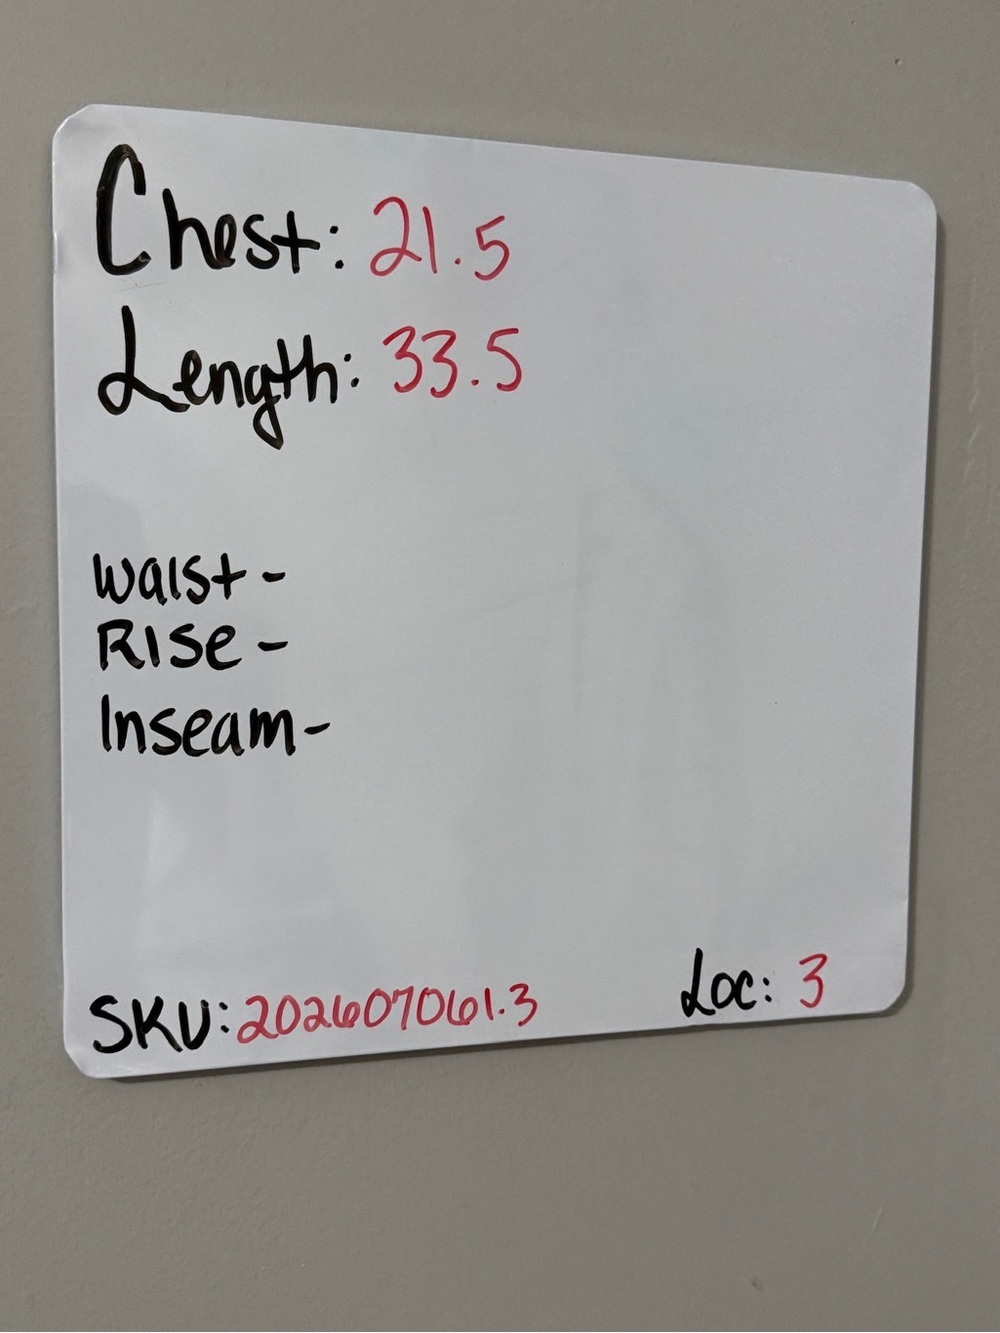 Chest: 21.5
Length: 33.5
Waist -
Rise -
Inseam -
SKU: 202607061.3
Loc: 3